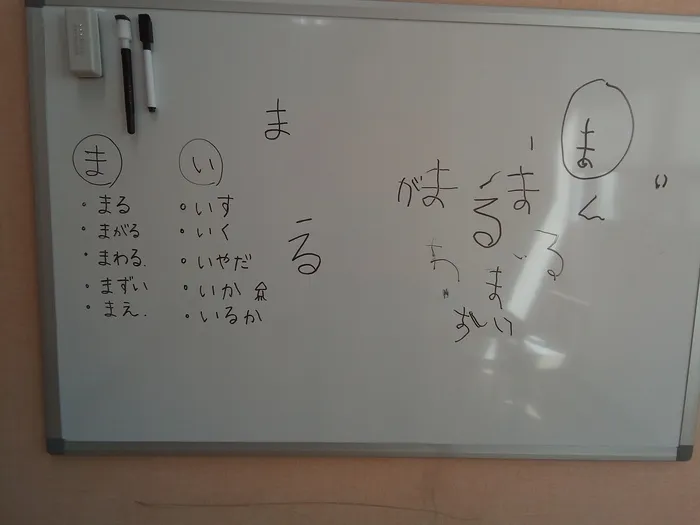 ま
まる
まがる
まわる.
まずい
まえ.
い
いす
いく
いやだ
いか
いるか
ま
る
ま
がま
ま
る
る
く
い
ま
ずい